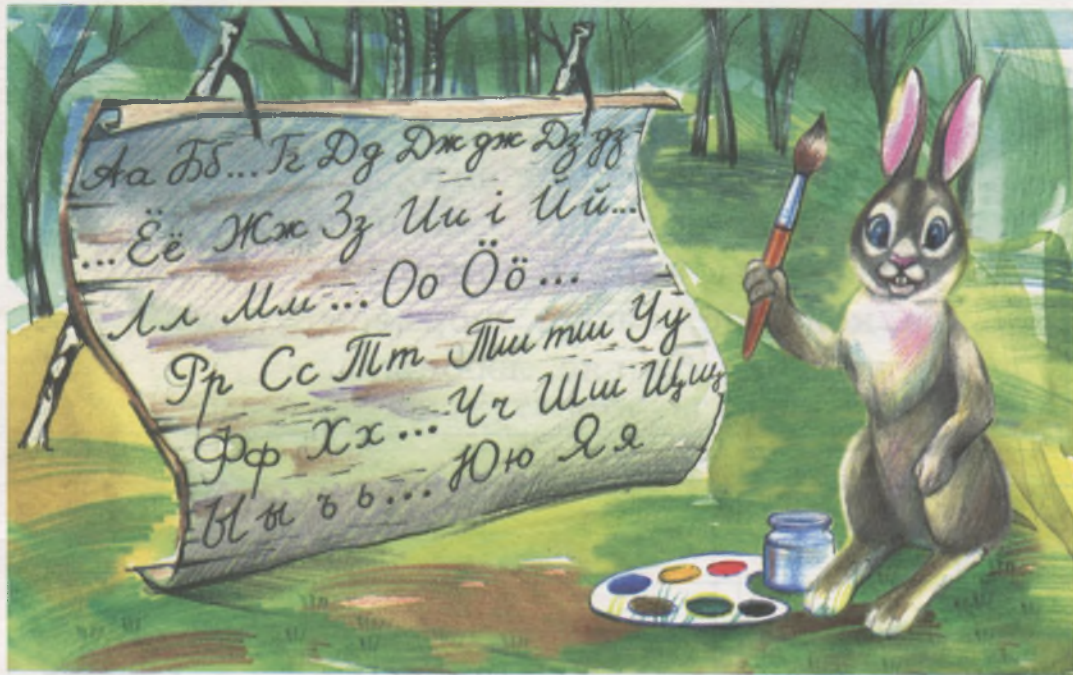 Аа Бб...Гг Дд Дж дж Дз дз
...Её Жж Зз Ии і Йй...
Лл Мм ... Оо Ӧӧ ...
Рр Сс Тт Тш тш Уу
Фф Хх ... Чч Шш Щщ
Ыы ъ ь ... Юю Яя